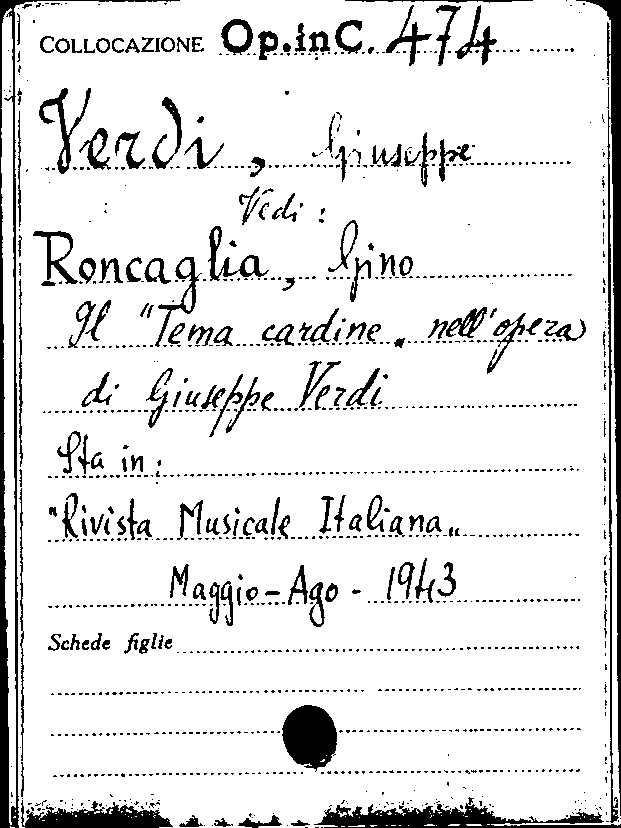 COLLOCAZIONE Op.inC. 474
Verdi, Giuseppe
Vedi:
Roncaglia, Gino
Il "Tema cardine„ nell'opera
di Giuseppe Verdi
Sta in:
"Rivista Musicale Italiana„
Maggio-Ago - 1943
Schede figlie